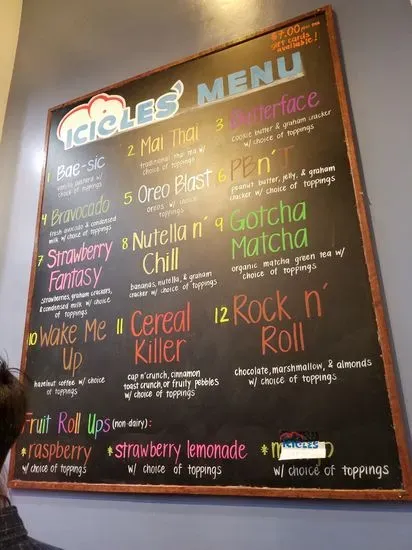 $7.00 plus tax
gift cards
available!
ICICLES' MENU
1 Bae-sic
vanilla batter w/
choice of toppings
2 Mai Thai
traditional thai tea w/
choice of toppings
3 Butterface
cookie butter & graham cracker
w/ choice of toppings
4 Bravocado
fresh avocado & condensed
milk w/ choice of toppings
5 Oreo Blast
oreos w/ choice of
toppings
6 PBn'J
peanut butter, jelly, & graham
cracker w/ choice of toppings
7 Strawberry
Fantasy
strawberries, graham crackers,
& condensed milk w/ choice
of toppings
8 Nutella n'
Chill
bananas, nutella, & graham
cracker w/ choice of toppings
9 Gotcha
Matcha
organic matcha green tea w/
choice of toppings
10 Wake Me
Up
hazelnut coffee w/ choice
of toppings
11 Cereal
Killer
cap n'crunch, cinnamon
toast crunch, or fruity pebbles
w/ choice of toppings
12 Rock n'
Roll
chocolate, marshmallow, & almonds
w/ choice of toppings
Fruit Roll Ups (non-dairy):
*raspberry
w/ choice of toppings
*strawberry lemonade
w/ choice of toppings
ICICLES
w/ choice of toppings